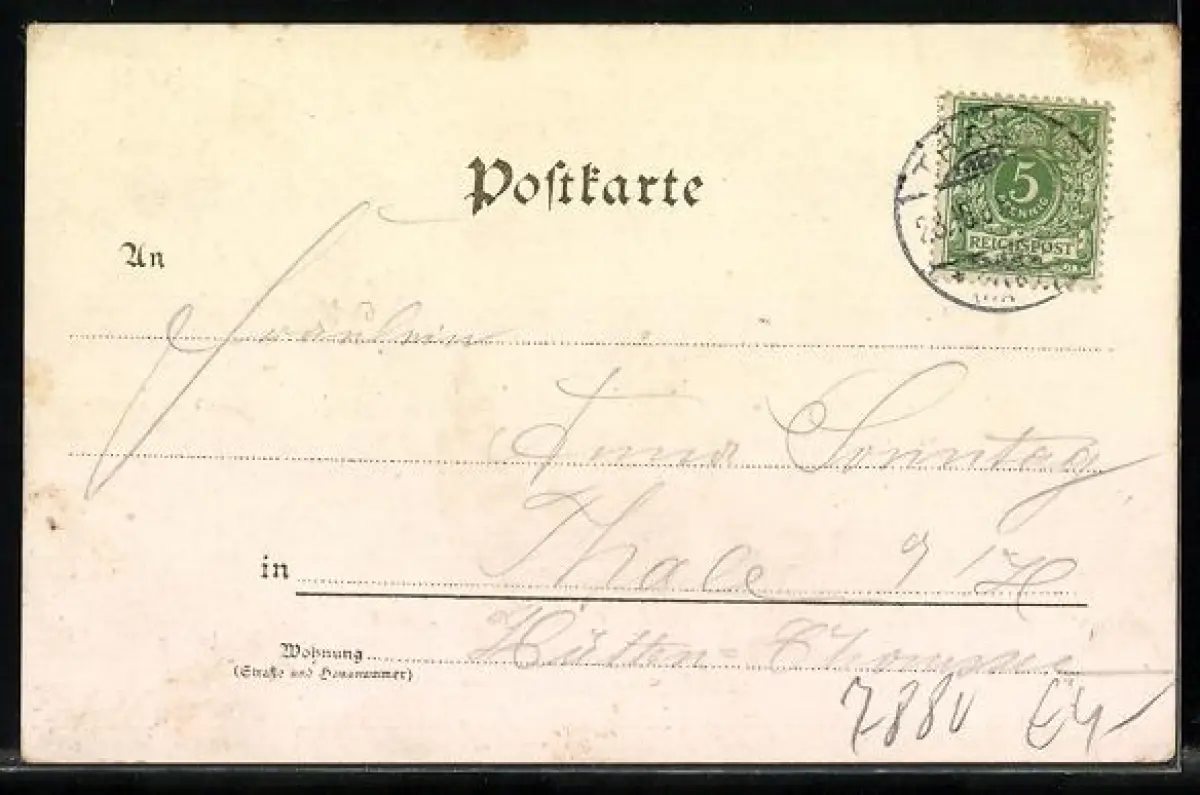 Postkarte
5
PFENNIG
REICHSPOST
An
Fräulein
Anna Sonntag
in Thale a/H
Wohnung Hütten-Chaussee
(Straße und Hausnummer)